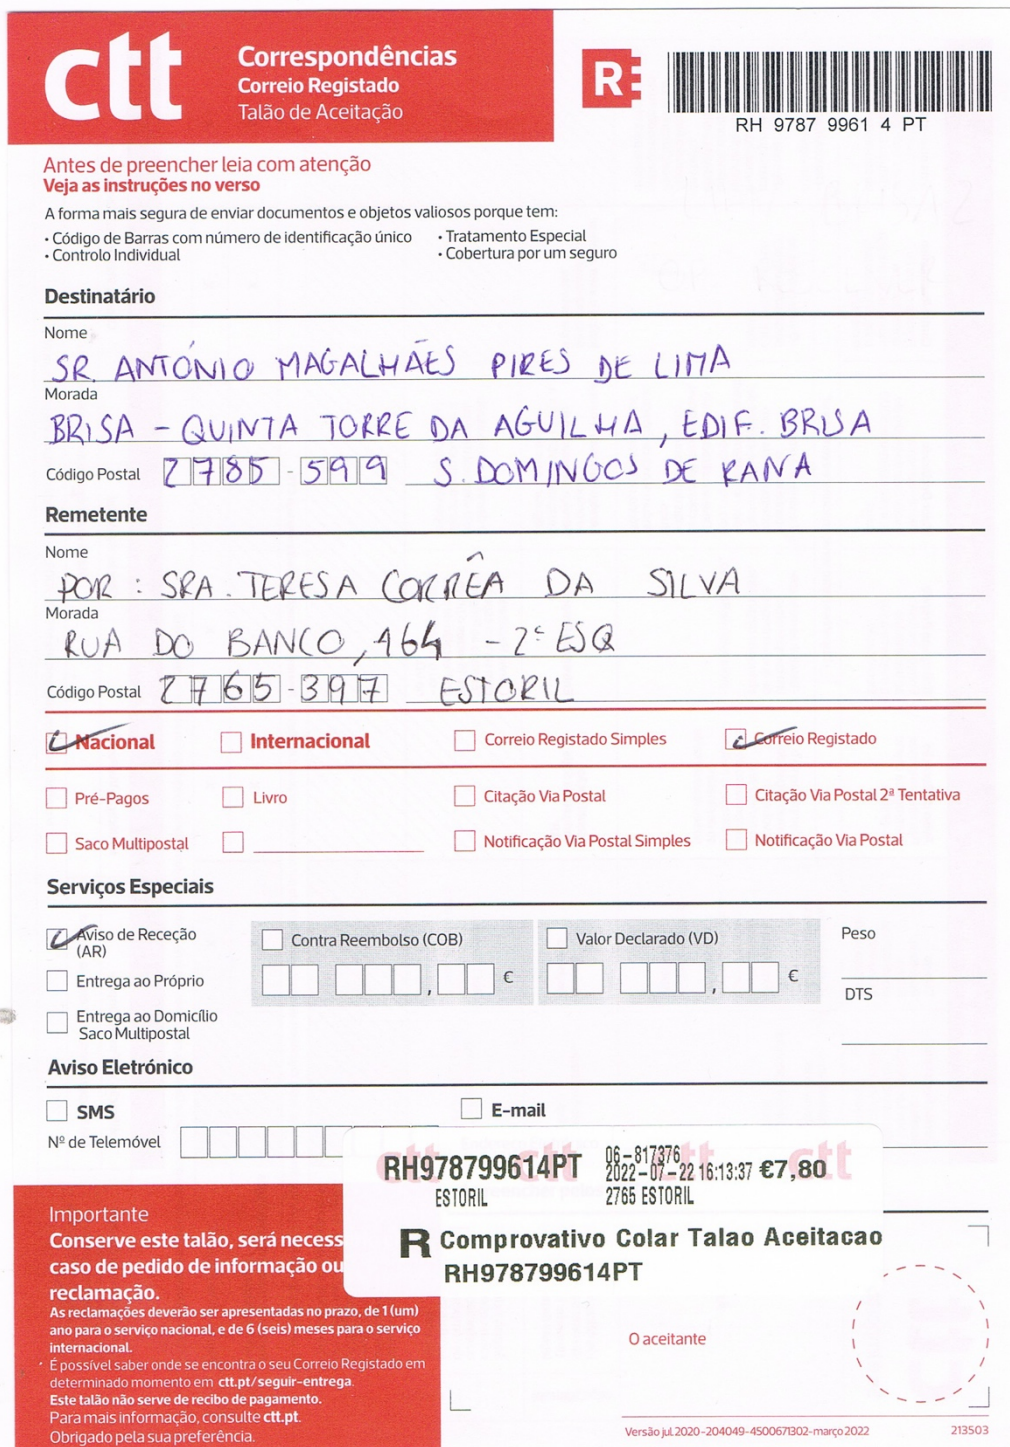 ctt
Correspondências
Correio Registado
Talão de Aceitação
R
RH 9787 9961 4 PT
Antes de preencher leia com atenção
Veja as instruções no verso
A forma mais segura de enviar documentos e objetos valiosos porque tem:
· Código de Barras com número de identificação único · Tratamento Especial
· Controlo Individual · Cobertura por um seguro
Destinatário
Nome
SR. ANTÓNIO MAGALHÃES PIRES DE LIMA
Morada
BRISA - QUINTA TORRE DA AGUILHA, EDIF. BRISA
Código Postal 2785 - 599 S. DOMINGOS DE RANA
Remetente
Nome
POR : SRA. TERESA CORRÊA DA SILVA
Morada
RUA DO BANCO, 164 - 2º ESQ
Código Postal 2765 - 397 ESTORIL
Nacional Internacional Correio Registado Simples Correio Registado
Pré-Pagos Livro Citação Via Postal Citação Via Postal 2ª Tentativa
Saco Multipostal Notificação Via Postal Simples Notificação Via Postal
Serviços Especiais
Aviso de Receção (AR) Contra Reembolso (COB) Valor Declarado (VD) Peso
Entrega ao Próprio , € , € DTS
Entrega ao Domicílio
Saco Multipostal
Aviso Eletrónico
SMS E-mail
Nº de Telemóvel
RH978799614PT 06-817376
2022-07-22 16:13:37 €7,80
ESTORIL 2765 ESTORIL
R Comprovativo Colar Talao Aceitacao
RH978799614PT
Importante
Conserve este talão, será necess
caso de pedido de informação ou
reclamação.
As reclamações deverão ser apresentadas no prazo, de 1 (um)
ano para o serviço nacional, e de 6 (seis) meses para o serviço
internacional.
É possível saber onde se encontra o seu Correio Registado em
determinado momento em ctt.pt/seguir-entrega.
Este talão não serve de recibo de pagamento.
Para mais informação, consulte ctt.pt.
Obrigado pela sua preferência.
O aceitante
Versão jul.2020-204049-4500671302-março 2022 213503